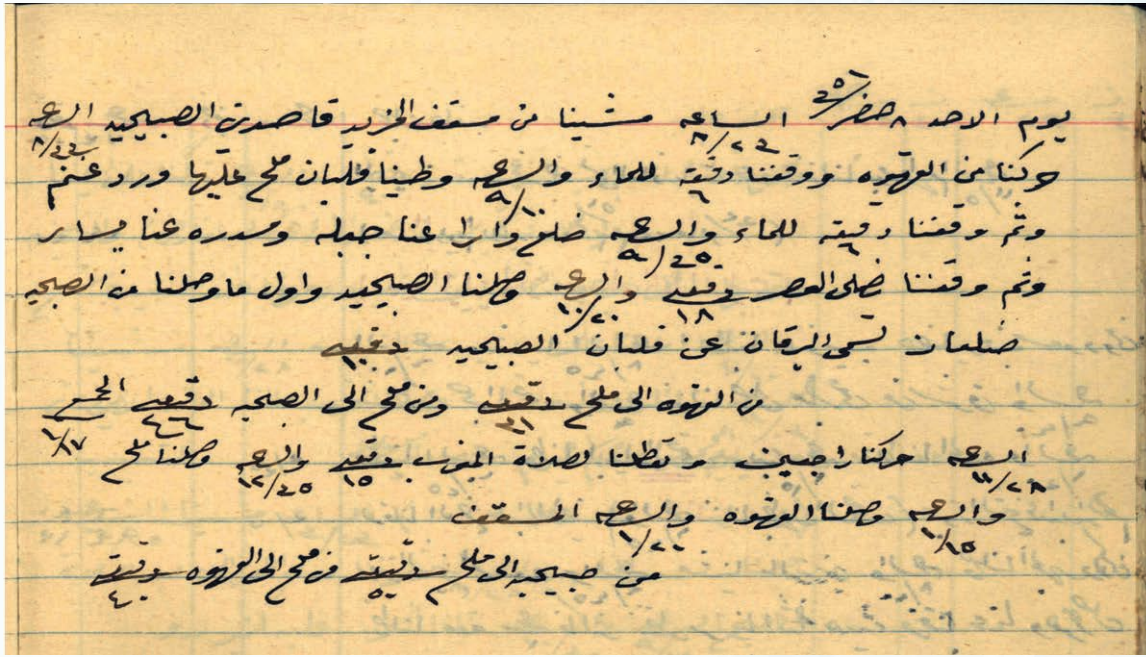 يوم الاحد ٨ صفر الساعه ٨/٢٣ مشينا من مسقف الجزيد قاصدين الصبيحيه السعه ٨/٤٤
حركنا من القهوه ووقفنا دقيقة ٦ للماء والسعه ٩/١٠ وطينا قلبان ملح عليها ورد غنم
وثم وقفنا دقيقه ٦ للماء والسعه ٩/٤٥ ضلع وارا عنا جبله وسدره عنا يسار
وثم وقفنا نصلي العصر دقيقه ١٨ والسعه ١٠/٢٠ وصلنا الصبيحيه واول ما وصلنا من الصبحيه
ضلعان تسمى البرقان عن قلبان الصبيحيه دقيقه ١٠
من القهوه الى ملح دقيقه ٣١ ومن ملح الى الصبحيه دقيقه ٤٦ الجمع ١/١٧
السعه ١١/٢٨ حركنا راجعين وتعطلنا لصلاة المغرب دقيقه ١٥ والسعه ١٢/٤٥ وصلنا ملح
والسعه ١/١٥ وصلنا القهوه والسعه ١/٢٠ المسقف
من صبيحيه الى ملح دقيقه من ملح الى القهوه دقيقه ٤٠